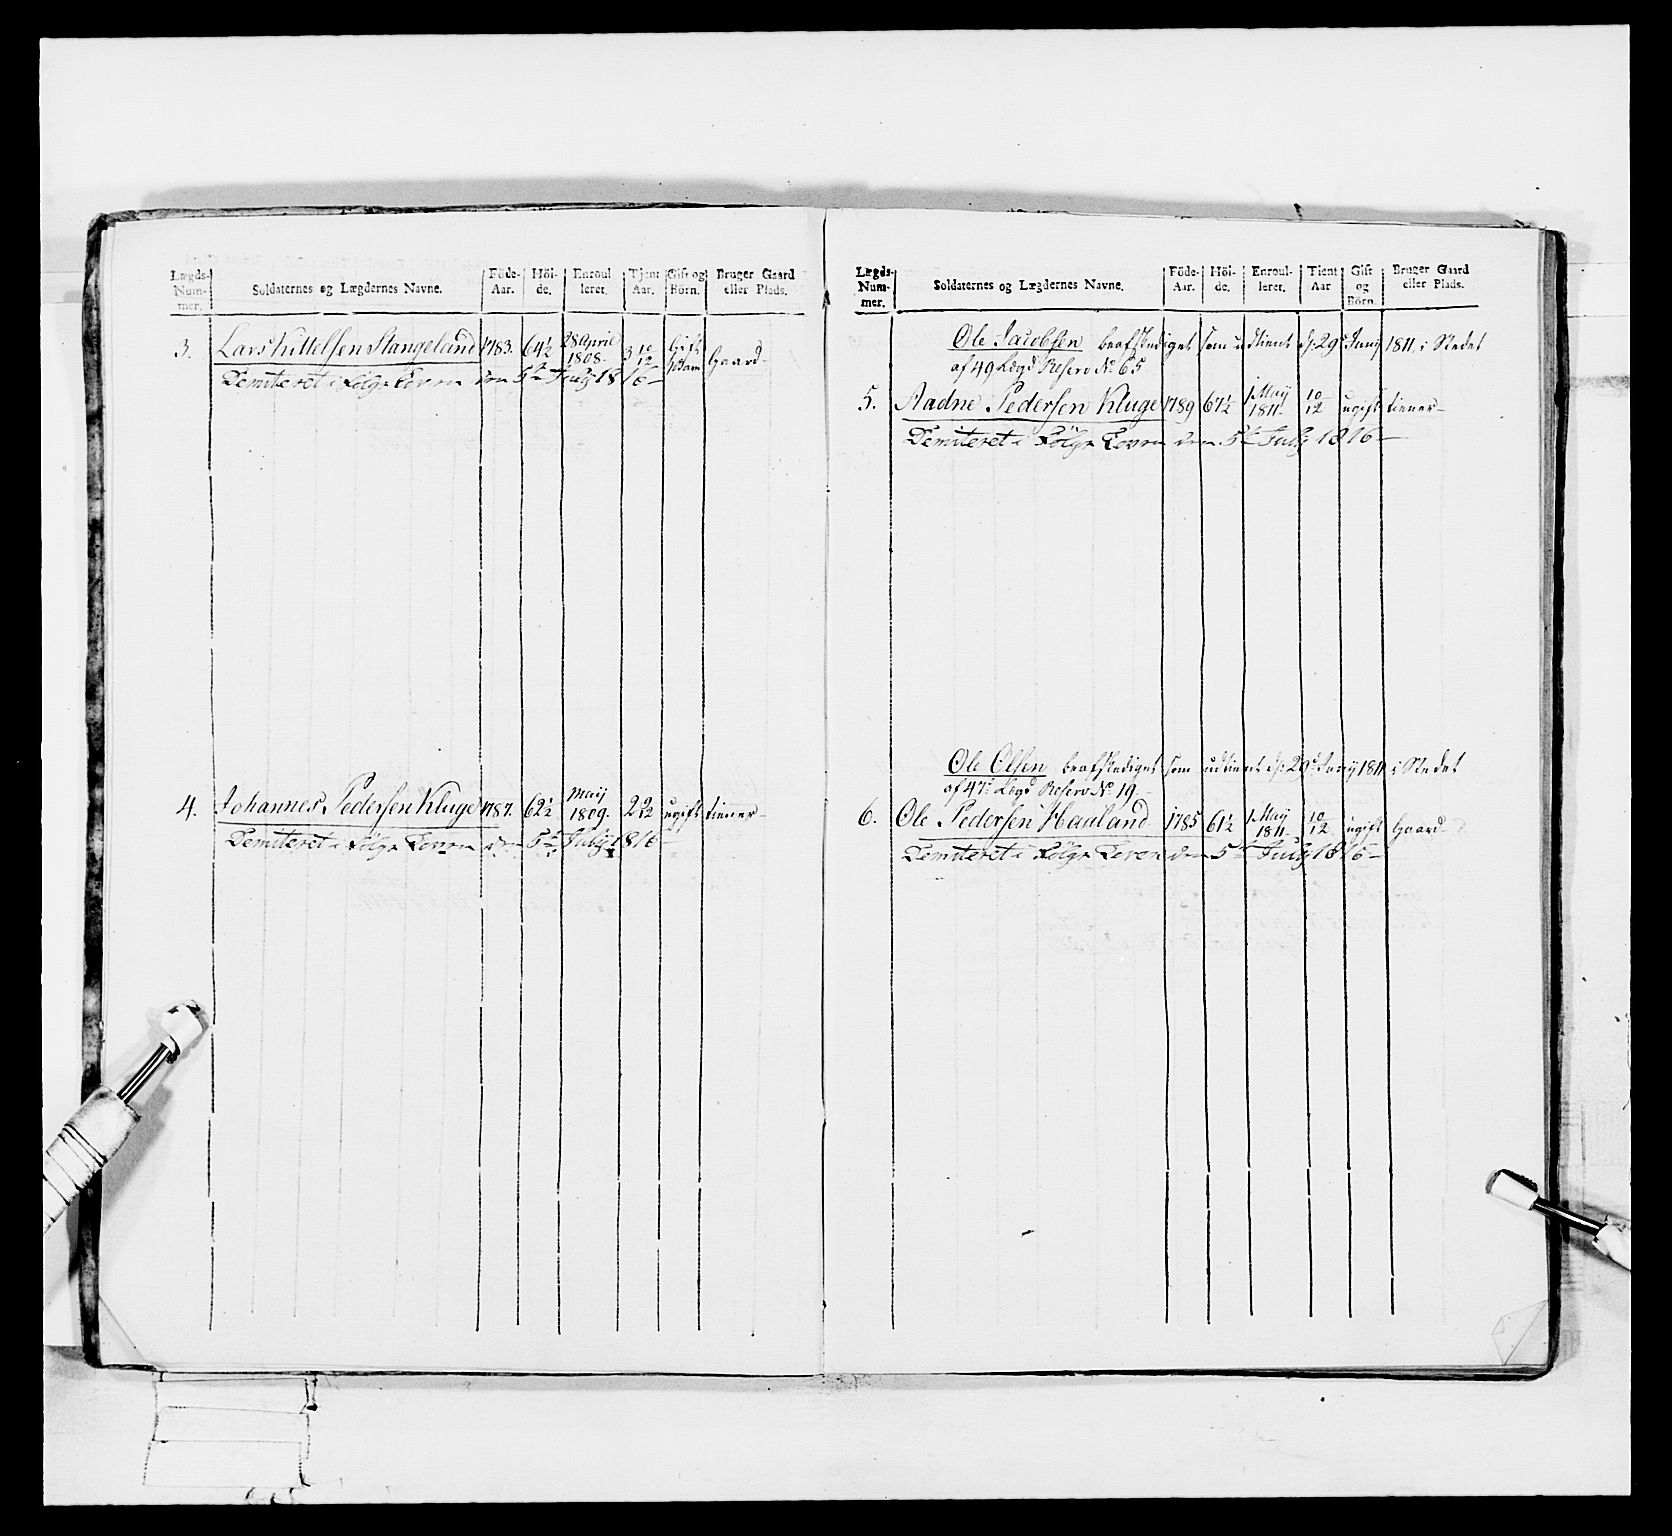 Lægds-Nummer. Soldaternes og Lægdernes Navne. Föde-Aar. Höi-de. Enroulleret. Tjent Aar. Gift og Börn. Bruger Gaard eller Plads.
3. Lars Kittelsen Stangeland 1783. 64½ 28 April 1808. 3 10/12 Gift 1 Barn Gaard-
Demiteret i Følge Revm den 5te July 1816-
4. Johannes Pedersen Kluge 1787. 62½ Maij 1809. 2 2/12 ugift tiener-
Demiteret i Følge Revm den 5te July 1816-
Lægds-Nummer. Soldaternes og Lægdernes Navne. Föde-Aar. Höi-de. Enroul-leret. Tient Aar Gift og Börn. Bruger Gaard eller Plads.
Ole Jacobsen beafskediget som udtient d: 29de Junij 1811, i Stedet
af 49 Lægd Reserv No 65
5. Aadne Pedersen Kluge 1789 67½ 1 Maij 1811 10/12 ugift tiener-
Demiteret i Følge Revm den 5te July 1816-
Ole Olsen beafskediget som udtient d: 29de Junij 1811 i Stedet
af 47de Lægd Reserv No 19.
6. Ole Pedersen Haaland 1785 61½ 1 Maij 1811. 10/12 ugift Gaard-
Demiteret i Følge Revm den 5te July 1816-